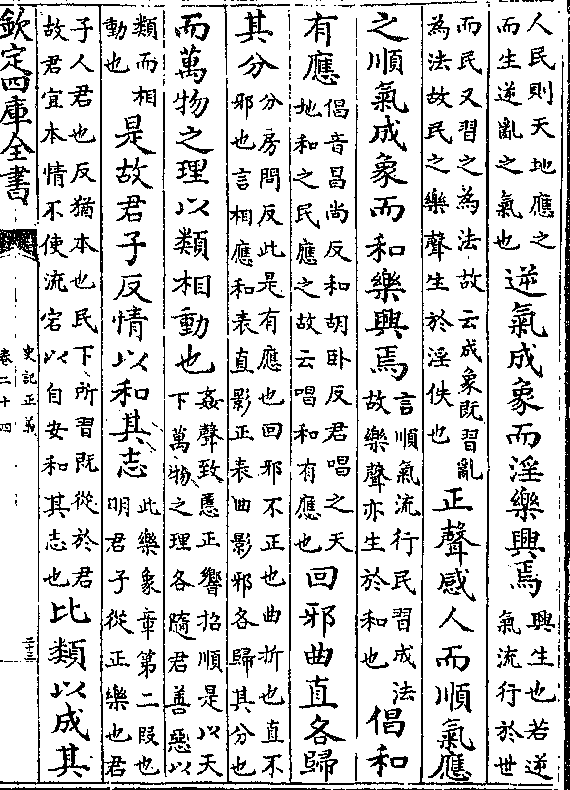 人民則天地應之
而生逆亂之氣也
逆氣成象而淫樂興焉
興生也若逆
氣流行於世
而民又習之為法故云成象既習亂
為法故民之樂聲生於淫佚也
正聲感人而順氣應
之順氣成象而和樂興焉
言順氣流行民習成法
故樂聲亦生於和也
倡和
有應
倡音昌尚反和胡卧反君唱之天
地和之民應之故云唱和有應也
回邪曲直各歸
其分
分房問反此是有應也回邪不正也曲折也直不
邪也言相應和表直影正表曲影邪各歸其分也
而萬物之理以類相動也
姦聲致慝正響招順是以天
下萬物之理各隨君善惡以
類而相
動也
是故君子反情以和其志
此樂象章第二段也
明君子從正樂也君
子人君也反猶本也民下所習既從於君
故君宜本情不使流宕以自安和其志也
比類以成其
欽定四庫全書
史記正義
卷二十四
二十三